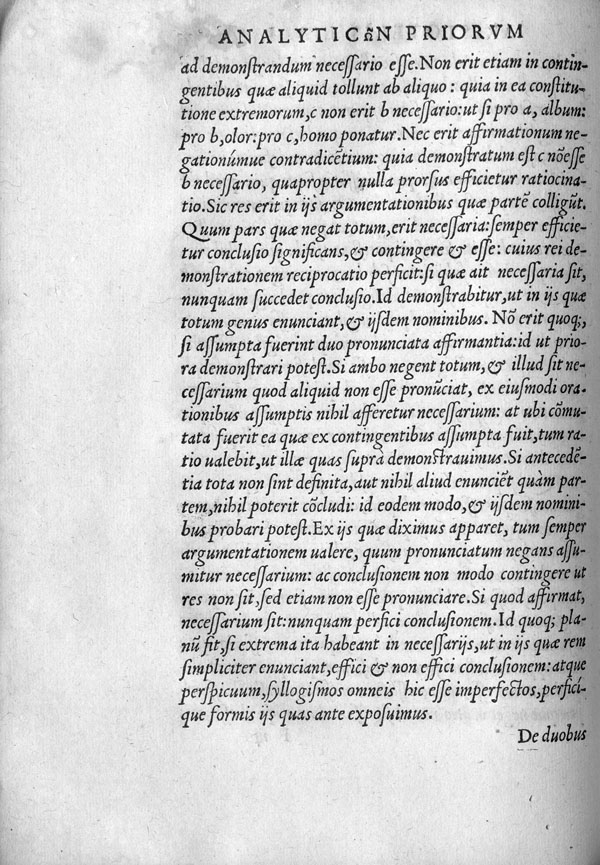 ANALYTICῶN PRIORVM
ad demonſtrandum neceſſario eſſe. Non erit etiam in contin-
gentibus quæ aliquid tollunt ab aliquo : quia in ea conſtitu-
tione extremorum, c non erit b neceſſario: ut ſi pro a, album:
pro b, olor: pro c, homo ponatur. Nec erit affirmationum ne-
gationúmue contradicētium: quia demonſtratum eſt c nōeſſe
b neceſſario, quapropter nulla prorſus efficietur ratiocina-
tio. Sic res erit in ijs argumentationibus quæ partē colligūt.
Quum pars quæ negat totum, erit neceſſaria: ſemper efficie-
tur concluſio ſignificans, & contingere & eſſe: cuius rei de-
monſtrationem reciprocatio perficit: ſi quæ ait neceſſaria ſit,
nunquam ſuccedet concluſio. Id demonſtrabitur, ut in ijs quæ
totum genus enunciant, & ijſdem nominibus. Nō erit quoq;,
ſi aſſumpta fuerint duo pronunciata affirmantia: id ut prio-
ra demonſtrari poteſt. Si ambo negent totum, & illud ſit ne-
ceſſarium quod aliquid non eſſe pronūciat, ex eiuſmodi ora-
tionibus aſſumptis nihil afferetur neceſſarium: at ubi cōmu-
tata fuerit ea quæ ex contingentibus aſſumpta fuit, tum ra-
tio ualebit, ut illæ quas ſuprà demonſtrauimus. Si antecedē-
tia tota non ſint definita, aut nihil aliud enunciēt quàm par-
tem, nihil poterit cōcludi: id eodem modo, & ijſdem nomini-
bus probari poteſt. Ex ijs quæ diximus apparet, tum ſemper
argumentationem ualere, quum pronunciatum negans aſſu-
mitur neceſſarium: ac concluſionem non modo contingere ut
res non ſit, ſed etiam non eſſe pronunciare. Si quod affirmat,
neceſſarium ſit: nunquam perfici concluſionem. Id quoq; pla-
nū fit, ſi extrema ita habeant in neceſſarijs, ut in ijs quæ rem
ſimpliciter enunciant, effici & non effici concluſionem: atque
perſpicuum, ſyllogiſmos omneis hic eſſe imperfectos, perfici-
que formis ijs quas ante expoſuimus.
De duobus